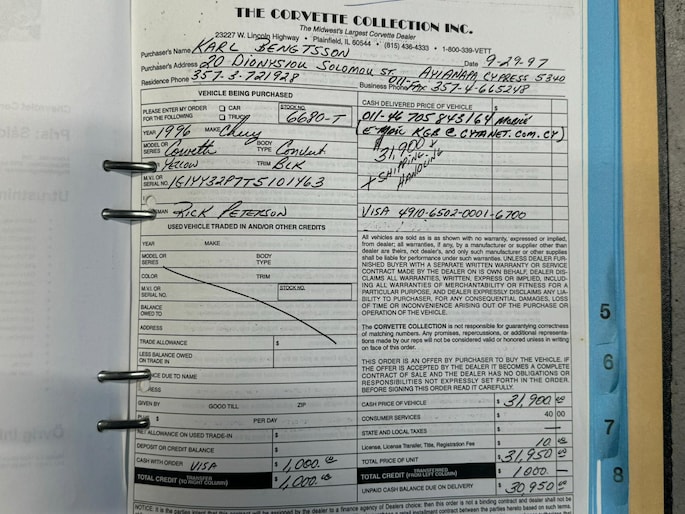 THE CORVETTE COLLECTION INC.
The Midwest's Largest Corvette Dealer
23227 W. Lincoln Highway • Plainfield, IL 60544 • (815) 436-4333 • 1-800-339-VETT
Purchaser's Name KARL BENGTSSON Date 9-29-97
Purchaser's Address 20 DIONYSIOU SOLOMOU ST. AYIANAPA CYPRESS 5340
Residence Phone 357-3-721928 Business Phone FAX 011- 357-4-665248
VEHICLE BEING PURCHASED
PLEASE ENTER MY ORDER FOR THE FOLLOWING
CAR
TRUCK
STOCK NO. 6680-T
YEAR 1996 MAKE Chevy
MODEL OR SERIES Corvette BODY TYPE Convert
YELLOW TRIM BLK
M.V.I. OR SERIAL NO. 1G1YY32P7TS101463
RICK PETERSON
USED VEHICLE TRADED IN AND/OR OTHER CREDITS
YEAR MAKE
MODEL OR SERIES BODY TYPE
COLOR TRIM
M.V.I. OR SERIAL NO. STOCK NO.
BALANCE OWED TO
ADDRESS
TRADE ALLOWANCE $
LESS BALANCE OWED ON TRADE IN
DUE TO NAME
GIVEN BY GOOD TILL ZIP
$ PER DAY
NET ALLOWANCE ON USED TRADE-IN $
DEPOSIT OR CREDIT BALANCE $
CASH WITH ORDER VISA $ 1,000.00
TOTAL CREDIT TRANSFERRED (TO RIGHT COLUMN) $ 1,000.00
CASH DELIVERED PRICE OF VEHICLE $
011-46 705 843164 MOBIL
(E-MAIL KGB @ CYTANET.COM.CY)
31,900
X SHIPPING HANDLING
VISA 4910-6502-0001-6700
All vehicles are sold as is as shown with no warranty, expressed or implied,
from dealer; all warranties, if any, by a manufacturer or supplier other than
dealer are theirs, not dealer's, and only such manufacturer or other supplier
shall be liable for performance under such warranties. UNLESS DEALER FUR-
NISHED BUYER WITH A SEPARATE WRITTEN WARRANTY OR SERVICE
CONTRACT MADE BY THE DEALER ON IS OWN BEHALF, DEALER DIS-
CLAIMS ALL WARRANTIES, WRITTEN, EXPRESS OR IMPLIED, INCLUD-
ING ALL WARRANTIES OF MERCHANTABILITY OR FITNESS FOR A
PARTICULAR PURPOSE, AND DEALER EXPRESSLY DISCLAIMS ANY LIA-
BILITY TO PURCHASER, FOR ANY CONSEQUENTIAL DAMAGES, LOSS
OF TIME OR INCONVENIENCE ARISING OUT OF THE PURCHASE OR
OPERATION OF THE VEHICLE.
The CORVETTE COLLECTION is not responsible for guarantying correctness
of matching numbers. Any promises, repercussions, or additional representa-
tions made by our reps will not be considered valid or honored unless in writing
on face of this order.
THIS ORDER IS AN OFFER BY PURCHASER TO BUY THE VEHICLE. IF
THE OFFER IS ACCEPTED BY THE DEALER IT BECOMES A COMPLETE
CONTRACT OF SALE AND THE DEALER HAS NO OBLIGATIONS OR
RESPONSIBILITIES NOT EXPRESSLY SET FORTH IN THE ORDER.
BEFORE SIGNING THIS ORDER READ IT CAREFULLY.
CASH PRICE OF VEHICLE $ 31,900.00
CONSUMER SERVICES $ 40 00
STATE AND LOCAL TAXES $ —
License, License Transfer, Title, Registration Fee $ 10.00
TOTAL PRICE OF UNIT $ 31,950.00
TOTAL CREDIT TRANSFERRED (FROM LEFT COLUMN) $ 1000. —
UNPAID CASH BALANCE DUE ON DELIVERY $ 30,950.00
5
6
7
8